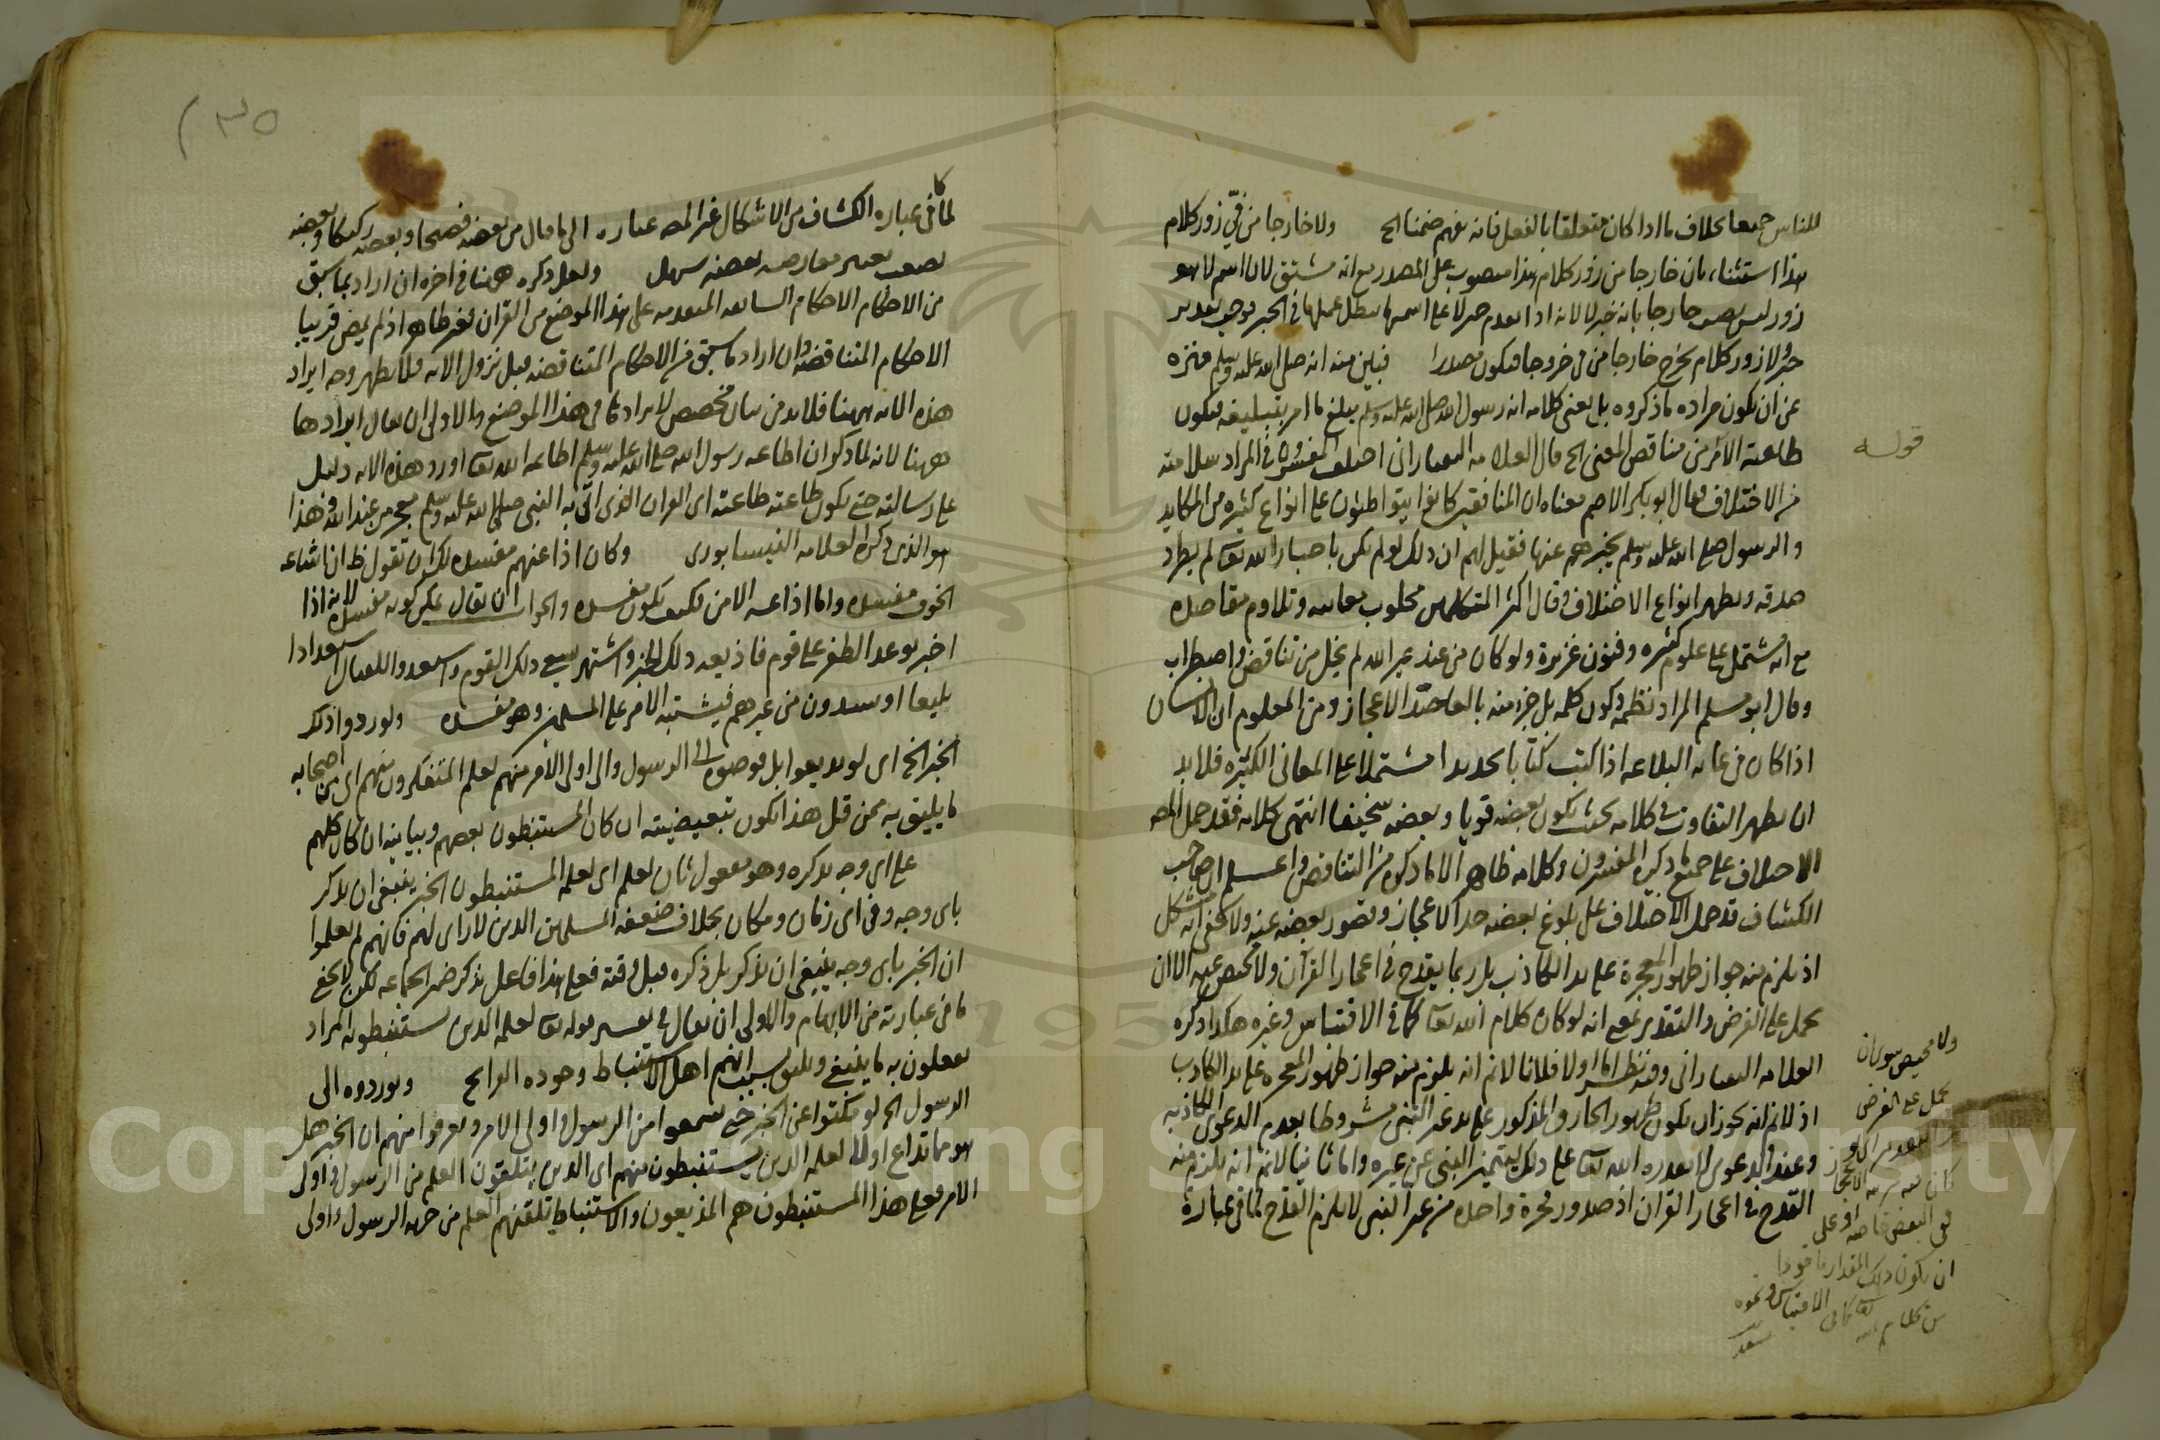 للناس جميعا بخلاف ما اذا كان متعلقا بالفعل فانه يفهم ضمنا الخ ولا خارجا من فيّ زور كلام
هذا استثناء بان خارجا من زور كلام هذا منصوب على المصدر مع انه مشتق لان اسم لا هو
زور ليس بصب خارجا بانه خبر لا لانه اذا تقدم خبر لا على اسمها يبطل عملها في الخبر فوجب تقدير
خبر ولا زور كلام يخرج خارجا من في خروجا فيكون مصدرا فبين منه انه صلى الله عليه وسلم منزه
عن ان يكون مراده ما ذكروه بل يعنى كلامه انه رسول الله صلى الله عليه وسلم يبلغ ما امر بتبليغه فيكون
قوله
طاعته الامر من مناقض المعنى الخ قال العلامة التفتازاني اختلف المفسرون في المراد بسلامته
من الاختلاف فقال ابو بكر الاصم معناه ان المنافقين كانوا يتواطئون على انواع كثيرة من المكايد
والرسول صلى الله عليه وسلم يخبرهم عنها فقيل لهم ان ذلك لو لم يكن باخبار الله تعا لم يطرد
صدقه ويظهر انواع الاختلاف وقال اكثر المتكلمين
مع انه مشتمل على علوم كثيره وفنون غزيرة ولو كان من عند غير الله لم يخل من تناقض واضطراب
وقال ابو مسلم المراد نظمه وكون كلمه بل جزء منه بالغا حد الاعجاز ومن المعلوم ان الانسان
اذا كان في غاية البلاغه اذا كتب كتابا مشتملا على المعاني الكثيره فلا بد
ان يظهر التفاوت في كلامه بحيث يكون بعضه قويا وبعضه سخيفا انتهى كلامه فقد حمل المص
الاختلاف على جميع ما ذكره المفسرون وكلامه ظاهر الا ما ذكره من التناقض واعلم ان صاحب
الكشاف قد حمل الاختلاف على بلوغ بعضه حد الاعجاز وقصور بعضه عنه ولا يخفى انه مشكل
اذ يلزم منه جواز ظهور المعجزة على يد الكاذب بل ربما يقدح في اعجاز القرآن ولا محيص عنه الا ان
يحمل على الفرض والتقدير بمعنى انه لو كان كلام الله تعا كما في الاقتباس وغيره هكذا ذكره
العلامه التفتازاني وفيه نظر اما اولا فلانا لا نم انه يلزم منه جواز ظهور المعجزه على يد الكاذب
اذ لا نم انه يجوز ان يكون ظهور الخارق المذكور على يد غير النبي مشروطا بعدم الدعوى الكاذبه
وعند الدعوى لا يقدره الله تعا على ذلك ليتميز النبي عن غيره واما ثانيا لا نم انه يلزم منه
القدح في اعجاز القران اذ صدور معجزة واحده من غير النبي لا يلزم القدح كما في عبارة
ولا محيص سوى ان
يحمل على الفرض
والتقدير اى لو
كان فيه مرتبة الاعجاز
في البعض خاصه او على
ان يكون ذلك المقدار ماخوذا
من كلام الله تعا كما في الاقتباس ونحوه
سعد
٢٣٥
كا
لما في عباره الكشاف من الاشكال غير المص عباره الى ما قال من بعضه فصيحا وبعضه ركيكا وبعضه
يصعب معارضته وبعضه يسهل ولعل ذكره ههنا في اخره ان اراد بما سبق
من الاحكام الاحكام السابقه المتقدمه على هذا الموضع من القران فغير ظاهر اذ لم يمض قريبا
الاحكام المتناقضه وان اراد ما سبق من الاحكام المتناقضه قبل نزول الايه فلا يظهر وجه ايراد
هذه الايه ههنا فلا بد من بيان مخصص لايرادها في هذا الموضع والاولى ان يقال ايرادها
ههنا لانه لما ذكر ان اطاعه رسول الله صلى الله عليه وسلم اطاعه الله تعا اورد هذه الايه دليل
على رسالته حتى يكون طاعته طاعته اى القران الذى اتى به النبي صلى الله عليه وسلم معجز من عند الله وهذا
هو الذى ذكره العلامه النيسابورى وكان اذا عنهم مفسده لك ان تقول ظ ان اشاعه
الخوف مفسده واما اذاعه الامن فكيف يكون مفسده والجواب ان يقال يمكن كونه مفسده لانه اذا
اخبر بوعد الظفر على قوم فاذيعه ذلك الخبر واشتهر يسمع ذلك القوم واستعدوا للقتال استعدادا
بليغا او يستمدون من غيرهم فيشتبه الامر على المسلمين وهو مفسده ولو ردوا ذلك
الخبر الخ اى لو لم يذيعوا بل فوضوه الى الرسول والى اولى الامر منهم لعلم المتفكرون منهم اى من اصحابه
ما يليق به فمن قبل هذا تكون تبعيضيته ان كان المستنبطون بعضهم وبيانيه ان كان كلهم
على اى وجه يذكره وهو مفعول ثان لعلم اى لعلمه المستنبطون الخبر ينبغى ان يذكر
باى وجه وفى اى زمان ومكان بخلاف ضعفه المسلمين الذين لا راى لهم فانهم لم يعلموا
ان الخبر باى وجه ينبغى ان يذكر بل ذكره قبل وقته فعلى هذا فاعل يذكر ضمير الجماعه لكن لا يخفى
ما في عبارته من الابهام والاولى ان يقال في تفسير قوله تعا لعلمه الذين يستنبطونه المراد
يفعلون به ما ينبغى ويليق بسبب انهم اهل الاستنباط وجوده القرائح ولو ردوه الى
الرسول الخ لو سكتوا عن الخبر حتى يسمعوا من الرسول او اولى الامر ويعرفوا منهم ان الخبر هل
هو مما يذاع او لا لعلمه الذين يستنبطون منهم اى الذين يتلقون العلم من الرسول واولى
الامر فعلى هذا المستنبطون هم المذيعون والاستنباط تلقنهم العلم من جهه الرسول واولى